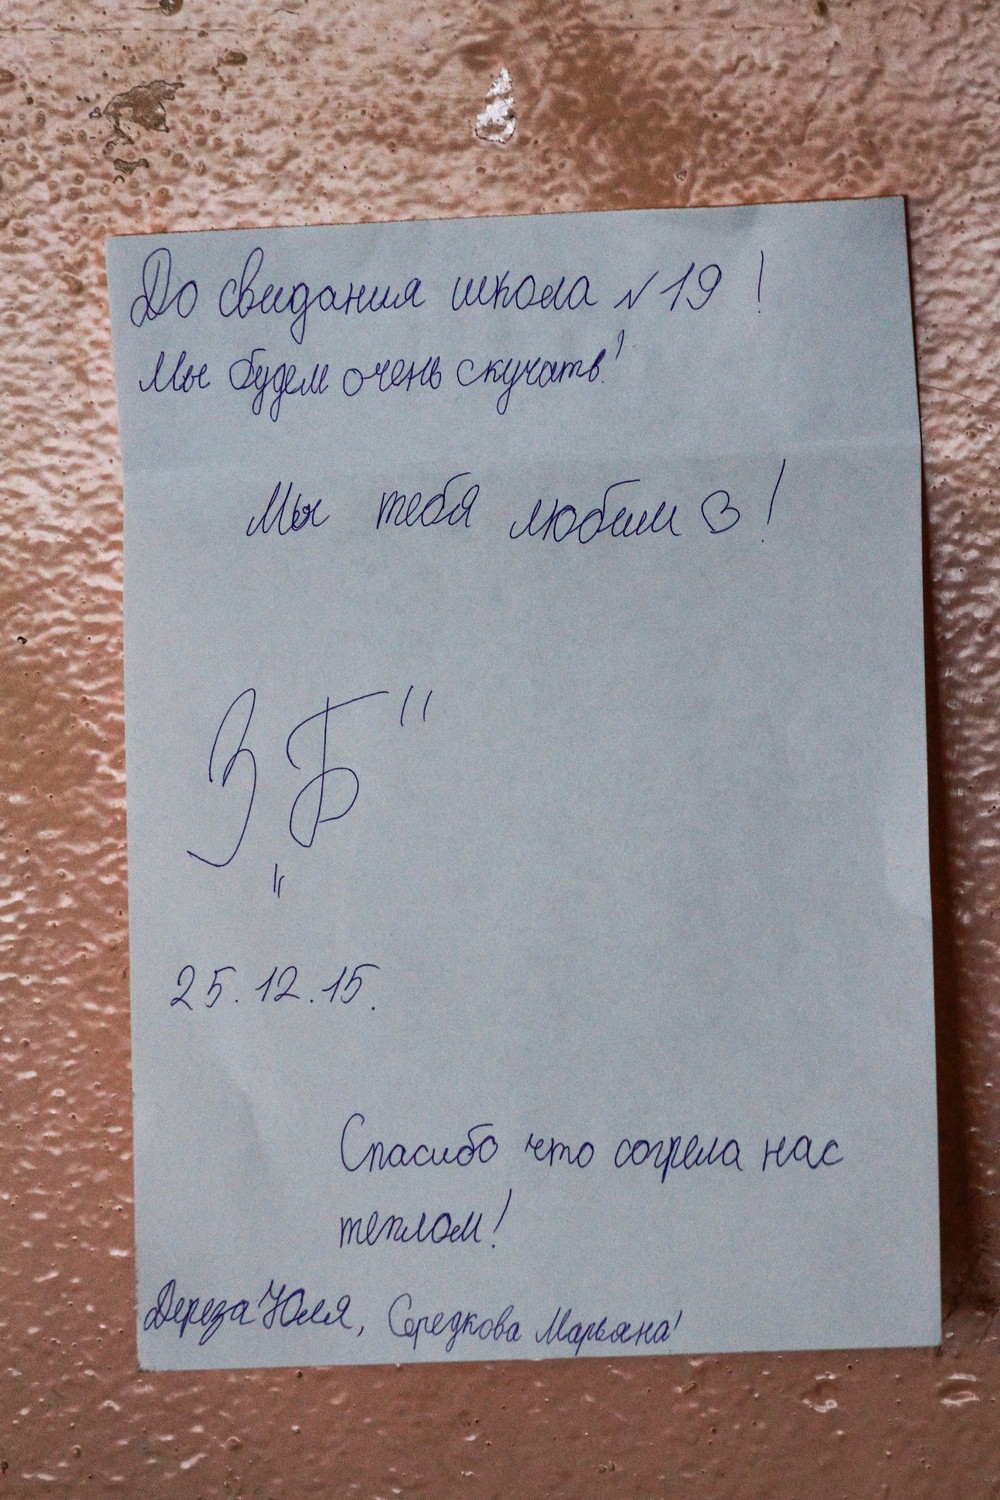 До свидания школа №19!
Мы будем очень скучать!
Мы тебя любим !
3 „Б"
25.12.15.
Спасибо что согрела нас
теплом!
Дереза Юля, Середкова Марьяна!